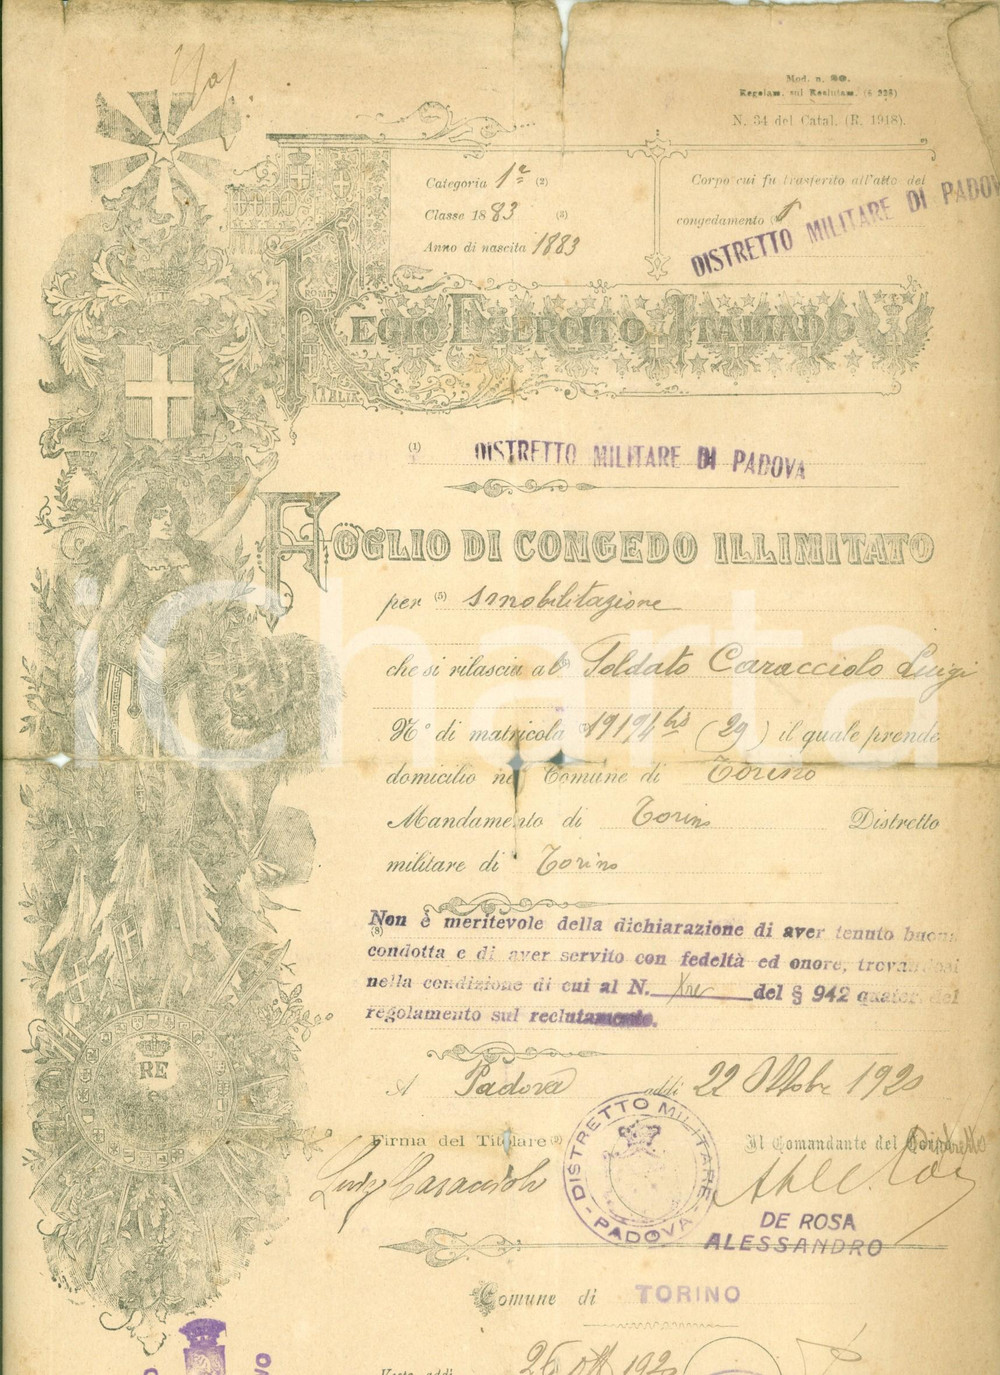 Mod. n. 20.
Regolam. sul Reclutam. (§ 225)
N. 34 del Catal. (R. 1918).
Categoria 1ª (2)
Classe 1883 (3)
Anno di nascita 1883
Corpo cui fu trasferito all'atto del
congedamento
DISTRETTO MILITARE DI PADOV
ROMA
ITALIA
REGIO ESERCITO ITALIANO
(1) DISTRETTO MILITARE DI PADOVA
FOGLIO DI CONGEDO ILLIMITATO
per (5) smobilitazione
che si rilascia al Soldato Caracciolo Luigi
N° di matricola 19194 bis (29) il quale prende
domicilio nel Comune di Torino
Mandamento di Torino Distretto
militare di Torino
Non è meritevole della dichiarazione di aver tenuto buona
(8)
condotta e di aver servito con fedeltà ed onore, trovandosi
nella condizione di cui al N. del § 942 quater del
regolamento sul reclutamento.
A Padova addì 22 Ottobre 1920
Firma del Titolare Il Comandante del Distretto
Luigi Caracciolo
DISTRETTO MILITARE - PADOVA -
DE ROSA
ALESSANDRO
RE
Comune di TORINO
Visto addì 25 Ott 1920
iCharta